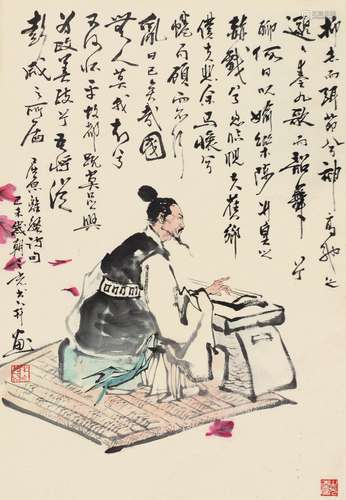 抑志而弭節兮神高馳之
邈邈奏九歌而韶舞兮
聊假日以媮樂陟升皇之
赫戲兮忽臨睨夫舊鄉
僕夫悲余馬懷兮
蜷局顧而不行
亂曰已矣哉國
無人莫我知兮
又何懷乎故都既莫足與
為美政兮吾將從
彭咸之所居
屈原離騷詩句
己未歲朝